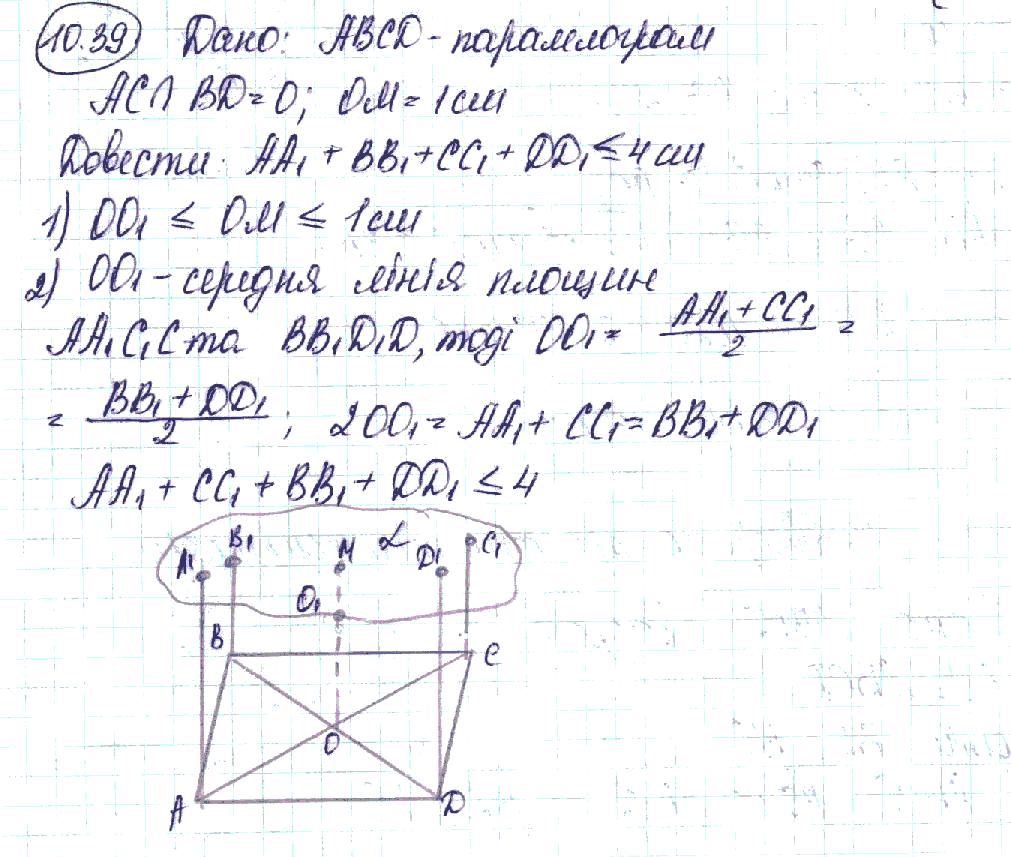 10.39 Дано: ABCD - паралелограм
AC∩ BD = O; OM = 1 см
Довести: AA₁ + BB₁ + CC₁ + DD₁ ≤ 4 см
1) OO₁ ≤ OM ≤ 1 см
2) OO₁ - середня лінія площин
AA₁C₁C та BB₁D₁D, тоді OO₁ = (AA₁ + CC₁)/2 =
= (BB₁ + DD₁)/2 ; 2OO₁ = AA₁ + CC₁ = BB₁ + DD₁
AA₁ + CC₁ + BB₁ + DD₁ ≤ 4
A₁ B₁ M α D₁ C₁
O₁
B C
O
A D